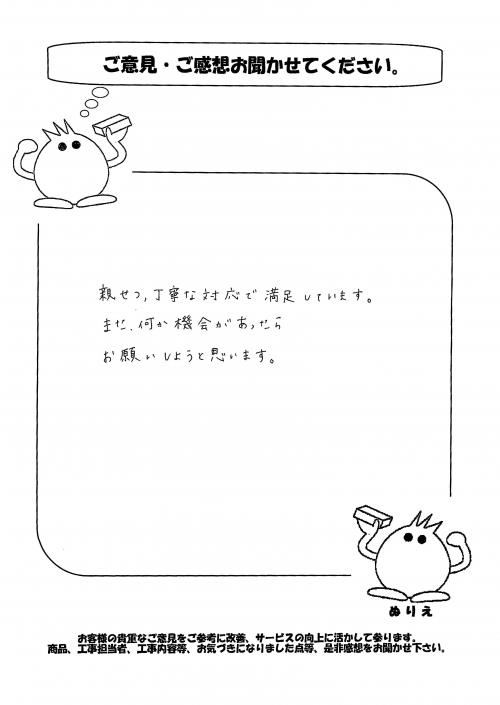 ご意見・ご感想お聞かせてください。
親せつ,丁寧な対応で満足しています。
また、何か機会があったら
お願いしようと思います。
ぬりえ
お客様の貴重なご意見をご参考に改善、サービスの向上に活かして参ります。
商品、工事担当者、工事内容等、お気づきになりました点等、是非感想をお聞かせ下さい。